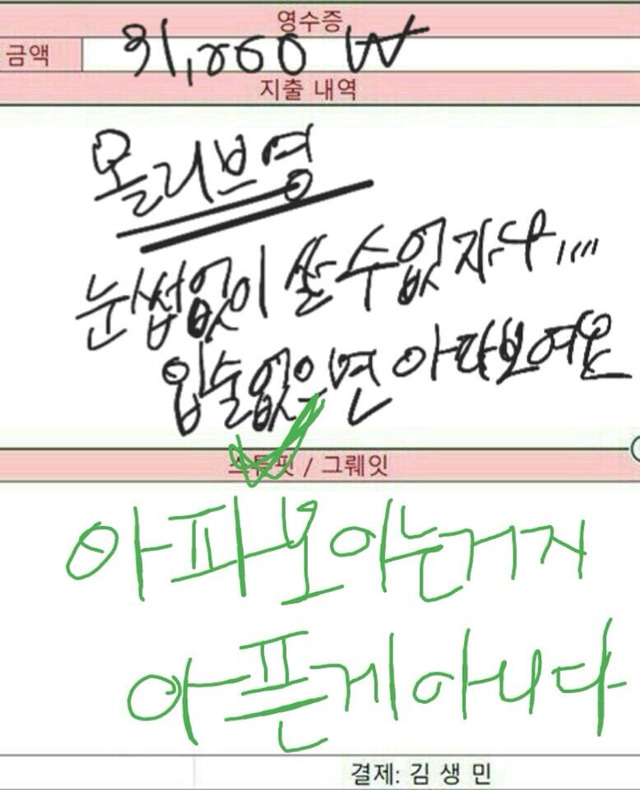 영수증
금액 ₩
지출 내역
올리브영
눈썹없이 살 수 없자나....
입술없으면 아파보여요
스튜핏 / 그뤠잇
아파보이는거지
아픈게아니다
결제: 김 생 민